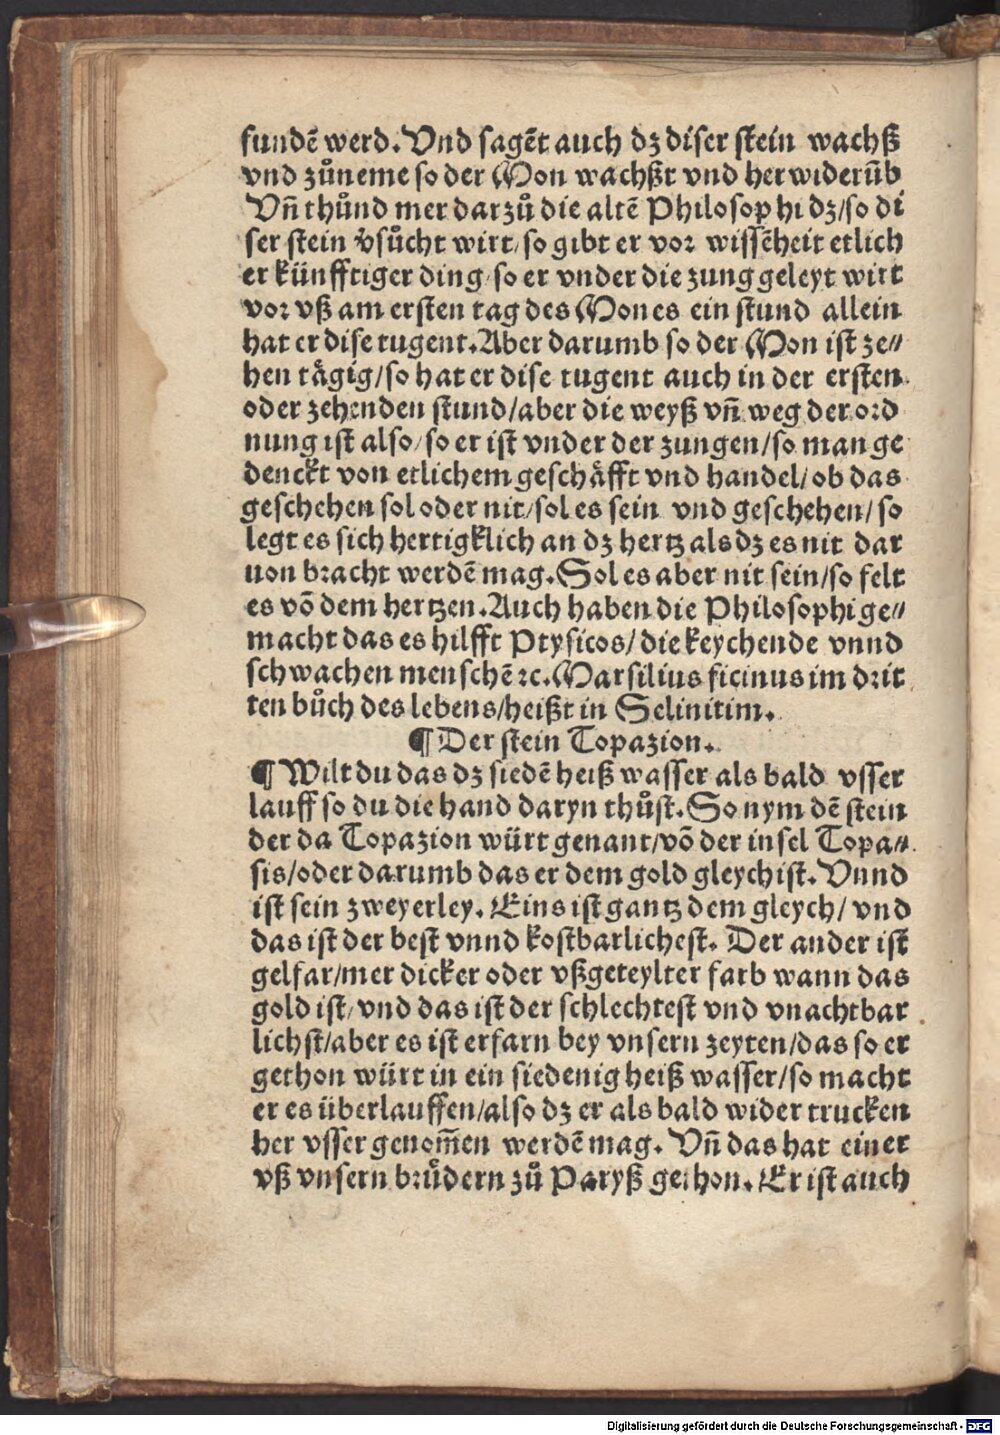 fundē werd. Vnd sagēt auch dz diser stein wachß
vnd zůneme so der Mon wachßt vnd herwiderūb
Vn̄ thůnd mer darzů die altē Philosophi dz/so di
ser stein v̄sůcht wirt/so gibt er vor wissēheit etlich
er künfftiger ding/so er vnder die zung geleyt wirt
vor vß am ersten tag des Mones ein stund allein
hat er dise tugent. Aber darumb so der Mon ist ze//
hen tägig/so hat er dise tugent auch in der ersten
oder zehenden stund/aber die weyß vn̄ weg der ord
nung ist also/so er ist vnder der zungen/so man ge
denckt von etlichem geschäfft vnd handel/ob das
geschehen sol oder nit/sol es sein vnd geschehen/so
legt es sich hertigklich an dz hertz als dz es nit dar
uon bracht werdē mag. Sol es aber nit sein/so felt
es vō dem hertzen. Auch haben die Philosophi ge//
macht das es hilfft Ptysicos/die keychende vnnd
schwachen menschē ꝛc. Marsilius ficinus im drit
ten bůch des lebens/heißt in Selinitim.
¶ Der stein Topazion.
¶ Wilt du das dz siedē heiß wasser als bald vsser
lauff so du die hand daryn thůst. So nym dē stein
der da Topazion würt genant/vō der insel Topa//
sis/oder darumb das er dem gold gleych ist. Vnnd
ist sein zweyerley. Eins ist gantz dem gleych/vnd
das ist der best vnnd kostbarlichest. Der ander ist
gelfar/mer dicker oder vßgeteylter farb wann das
gold ist/vnd das ist der schlechtest vnd vnachtbar
lichst/aber es ist erfarn bey vnsern zeyten/das so er
gethon würt in ein siedenig heiß wasser/so macht
er es überlauffen/also dz er als bald wider trucken
her vsser genom̄en werdē mag. Vn̄ das hat einer
vß vnsern brüdern zů Paryß gethon. Er ist auch
Digitalisierung gefördert durch die Deutsche Forschungsgemeinschaft - DFG